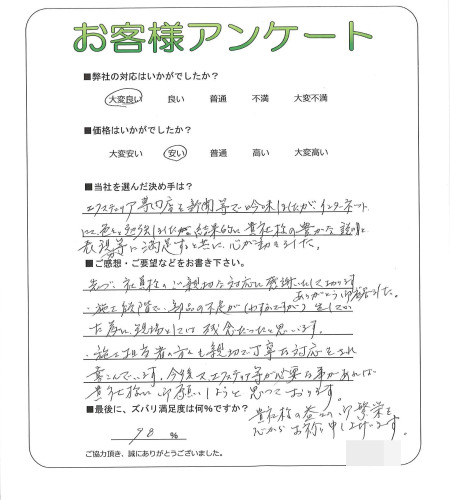 お客様アンケート
■弊社の対応はいかがでしたか？
大変良い 良い 普通 不満 大変不満
■価格はいかがでしたか？
大変安い 安い 普通 高い 大変高い
■当社を選んだ決め手は？
エクステリア専門店を新聞等で吟味しましたがインターネット
にて色々と勉強しました結果的に貴社様の豊かな説明と
表現等に満足すると共に、心が動きました。
■ご感想・ご要望などをお書き下さい。
先づ、社員様のご親切な対応に感謝いたして居ります
ありがとう御座居ました。
・施工段階で、部品の不足が（わずかですが）生じていた
為に、現場としては残念だったと思います。
・施工担当者の方も親切で丁寧な対応をされ
喜こんでいます。今後又、エクステリア等が必要な事があれば
貴社様に御願いしようと思っております。
■最後に、ズバリ満足度は何％ですか？
貴社様の益々の御繁栄を
心からお祈り申し上げます。
98 ％
ご協力頂き、誠にありがとうございました。